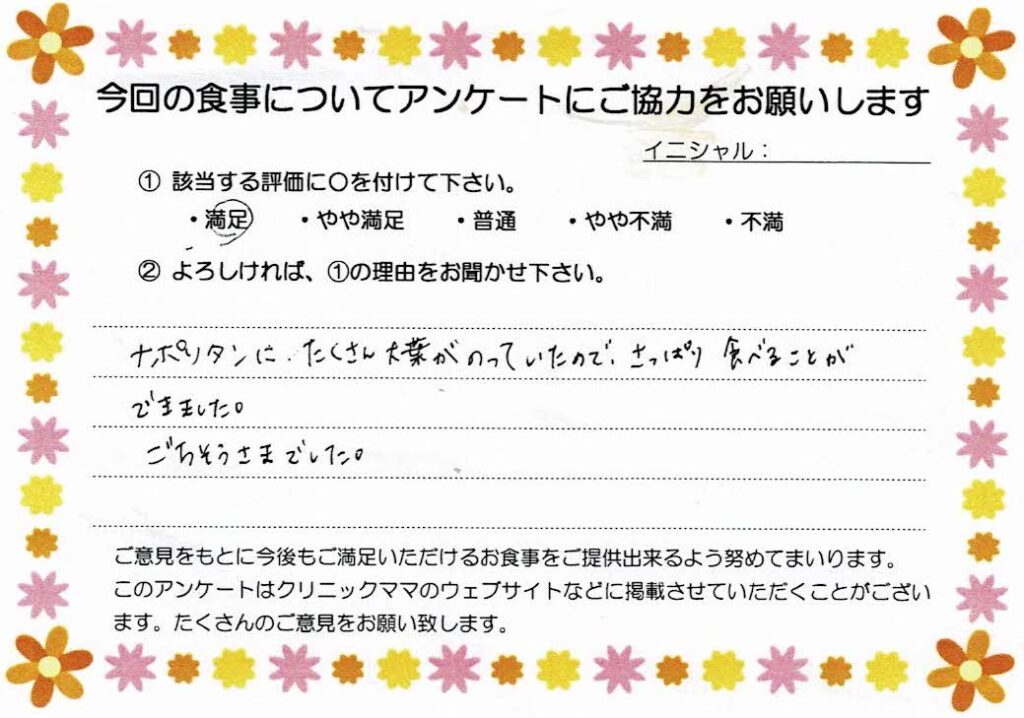 今回の食事についてアンケートにご協力をお願いします
イニシャル：
① 該当する評価に〇を付けて下さい。
・満足 ・やや満足 ・普通 ・やや不満 ・不満
② よろしければ、①の理由をお聞かせ下さい。
ナポリタンに、たくさん大葉がのっていたので、さっぱり食べることが
できました。
ごちそうさまでした。
ご意見をもとに今後もご満足いただけるお食事をご提供出来るよう努めてまいります。
このアンケートはクリニックママのウェブサイトなどに掲載させていただくことがござい
ます。たくさんのご意見をお願い致します。